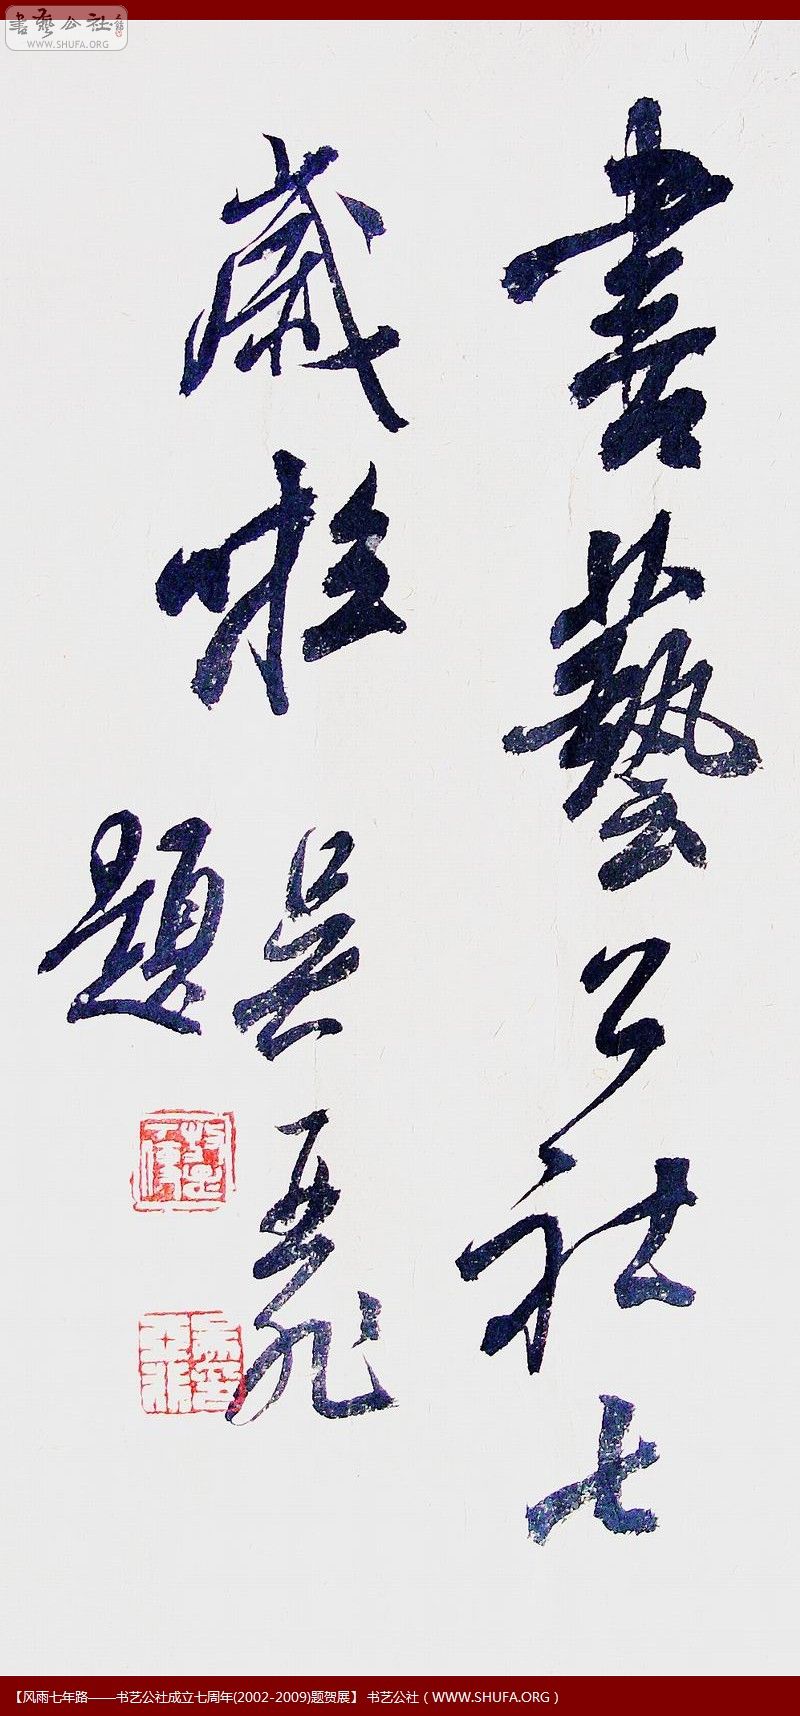 書藝公社
WWW.SHUFA.ORG
書藝公社七
歲啦
吴亚飛
題
【风雨七年路——书艺公社成立七周年(2002-2009)题贺展】 书艺公社（WWW.SHUFA.ORG）